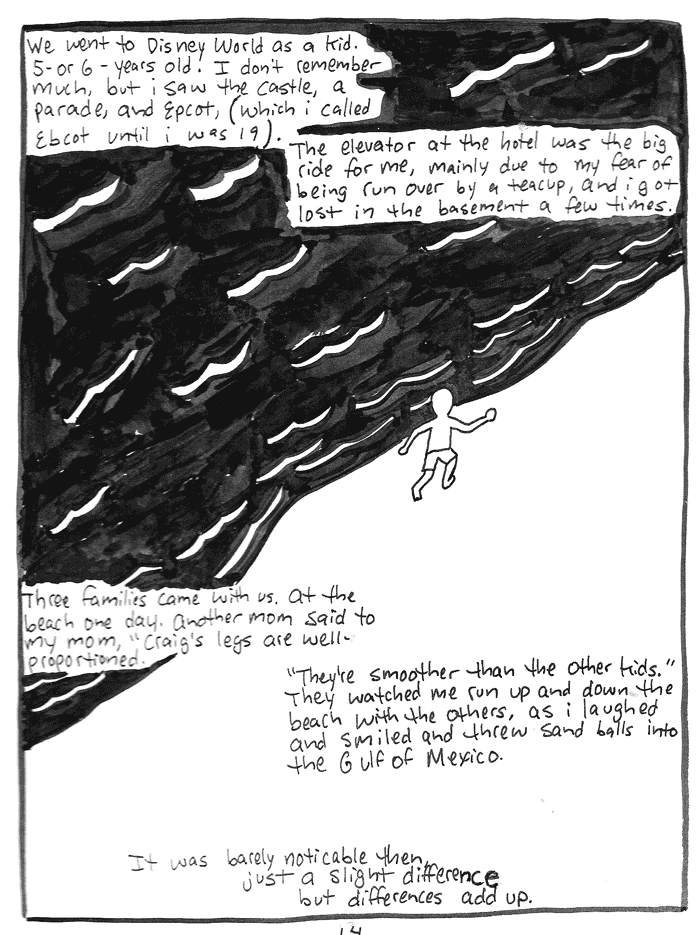 We went to Disney World as a kid.
5- or 6 - years old. I don't remember
much, but i saw the castle, a
parade, and Epcot, (which i called
Ebcot until i was 19).
The elevator at the hotel was the big
ride for me, mainly due to my fear of
being run over by a teacup, and i got
lost in the basement a few times.
Three families came with us. At the
beach one day. Another mom said to
my mom, "Craig's legs are well-
proportioned.
"They're smoother than the other kids."
They watched me run up and down the
beach with the others, as i laughed
and smiled and threw sand balls into
the Gulf of Mexico.
It was barely noticable then,
just a slight difference
but differences add up.
14